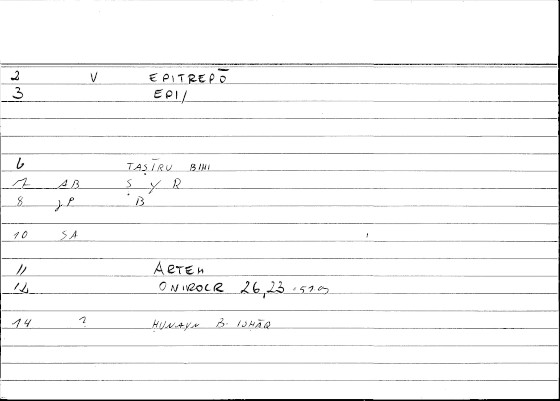 2 V EPITREPŌ
3 EPI/
6 TAṢĪRU BIHI
7 AB Ṣ Y R
8 JP B
10 SA
11 ARTEM
12 ONIROCR 26,23
14 ? ḤUNAYN B. ISḤĀQ